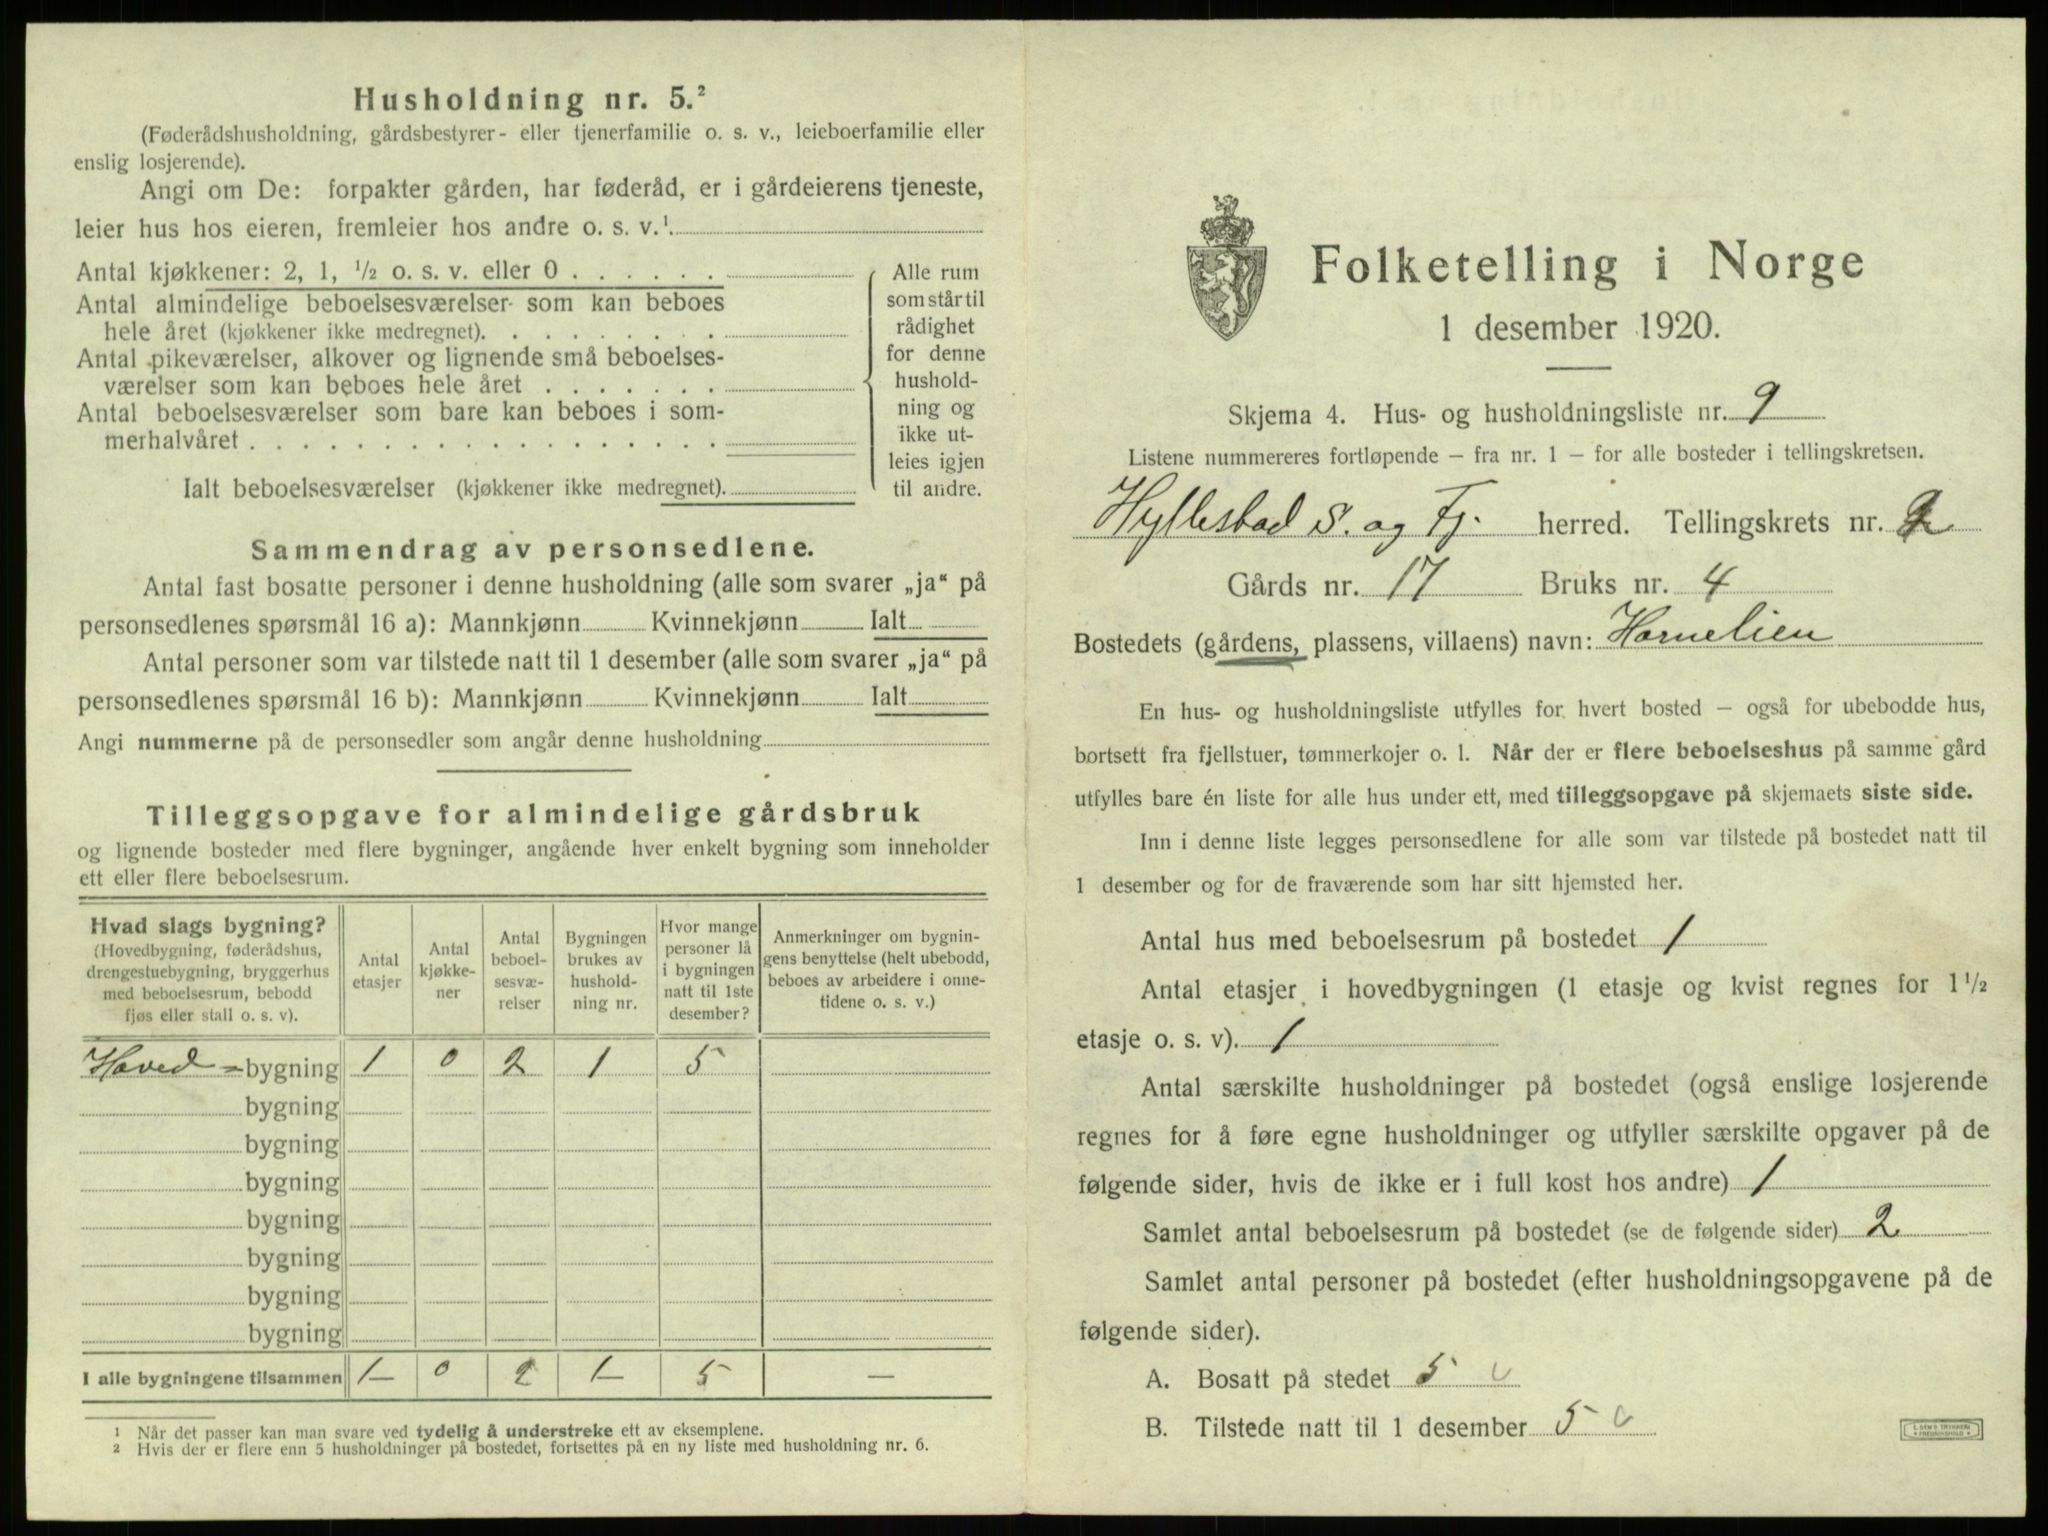 Husholdning nr. 5.²
(Føderådshusholdning, gårdsbestyrer- eller tjenerfamilie o. s. v., leieboerfamilie eller
enslig losjerende).
Angi om De: forpakter gården, har føderåd, er i gårdeierens tjeneste,
leier hus hos eieren, fremleier hos andre o. s. v.¹
Antal kjøkkener: 2, 1, ½ o. s. v. eller 0 . . . . . .
Antal almindelige beboelsesværelser som kan beboes
hele året (kjøkkener ikke medregnet). . . . . . . .
Antal pikeværelser, alkover og lignende små beboelses-
værelser som kan beboes hele året . . . . . . .
Antal beboelsesværelser som bare kan beboes i som-
merhalvåret . . . . . . . . . . . . . . . . . .
Ialt beboelsesværelser (kjøkkener ikke medregnet).
Alle rum
som står til
rådighet
for denne
hushold-
ning og
ikke ut-
leies igjen
til andre.
Sammendrag av personsedlene.
Antal fast bosatte personer i denne husholdning (alle som svarer „ja“ på
personsedlenes spørsmål 16 a): Mannkjønn Kvinnekjønn Ialt
Antal personer som var tilstede natt til 1 desember (alle som svarer „ja“ på
personsedlenes spørsmål 16 b): Mannkjønn Kvinnekjønn Ialt
Angi nummerne på de personsedler som angår denne husholdning
Tilleggsopgave for almindelige gårdsbruk
og lignende bosteder med flere bygninger, angående hver enkelt bygning som inneholder
ett eller flere beboelsesrum.
Hvad slags bygning?
(Hovedbygning, føderådshus,
drengestuebygning, bryggerhus
med beboelsesrum, bebodd
fjøs eller stall o. s. v).
Antal
etasjer
Antal
kjøkke-
ner
Antal
beboel-
sesvæ-
relser
Bygningen
brukes av
hushold-
ning nr.
Hvor mange
personer lå
i bygningen
natt til 1ste
desember?
Anmerkninger om bygnin-
gens benyttelse (helt ubebodd,
beboes av arbeidere i onne-
tidene o. s. v.)
Hoved-bygning 1 0 2 1 5
bygning
bygning
bygning
bygning
bygning
bygning
bygning
I alle bygningene tilsammen 1 0 2 1 5 —
¹ Når det passer kan man svare ved tydelig å understreke ett av eksemplene.
² Hvis der er flere enn 5 husholdninger på bostedet, fortsettes på en ny liste med husholdning nr. 6.
Folketelling i Norge
1 desember 1920.
Skjema 4. Hus- og husholdningsliste nr. 9
Listene nummereres fortløpende – fra nr. 1 – for alle bosteder i tellingskretsen.
Hyllestad S. og Fj. herred. Tellingskrets nr. 2
Gårds nr. 17 Bruks nr. 4
Bostedets (gårdens, plassens, villaens) navn: Hornelien
En hus- og husholdningsliste utfylles for hvert bosted – også for ubebodde hus,
bortsett fra fjellstuer, tømmerkojer o. l. Når der er flere beboelseshus på samme gård
utfylles bare én liste for alle hus under ett, med tilleggsopgave på skjemaets siste side.
Inn i denne liste legges personsedlene for alle som var tilstede på bostedet natt til
1 desember og for de fraværende som har sitt hjemsted her.
Antal hus med beboelsesrum på bostedet 1
Antal etasjer i hovedbygningen (1 etasje og kvist regnes for 1½
etasje o. s. v). 1
Antal særskilte husholdninger på bostedet (også enslige losjerende
regnes for å føre egne husholdninger og utfyller særskilte opgaver på de
følgende sider, hvis de ikke er i full kost hos andre) 1
Samlet antal beboelsesrum på bostedet (se de følgende sider) 2
Samlet antal personer på bostedet (efter husholdningsopgavene på de
følgende sider).
A. Bosatt på stedet 5
B. Tilstede natt til 1 desember 5